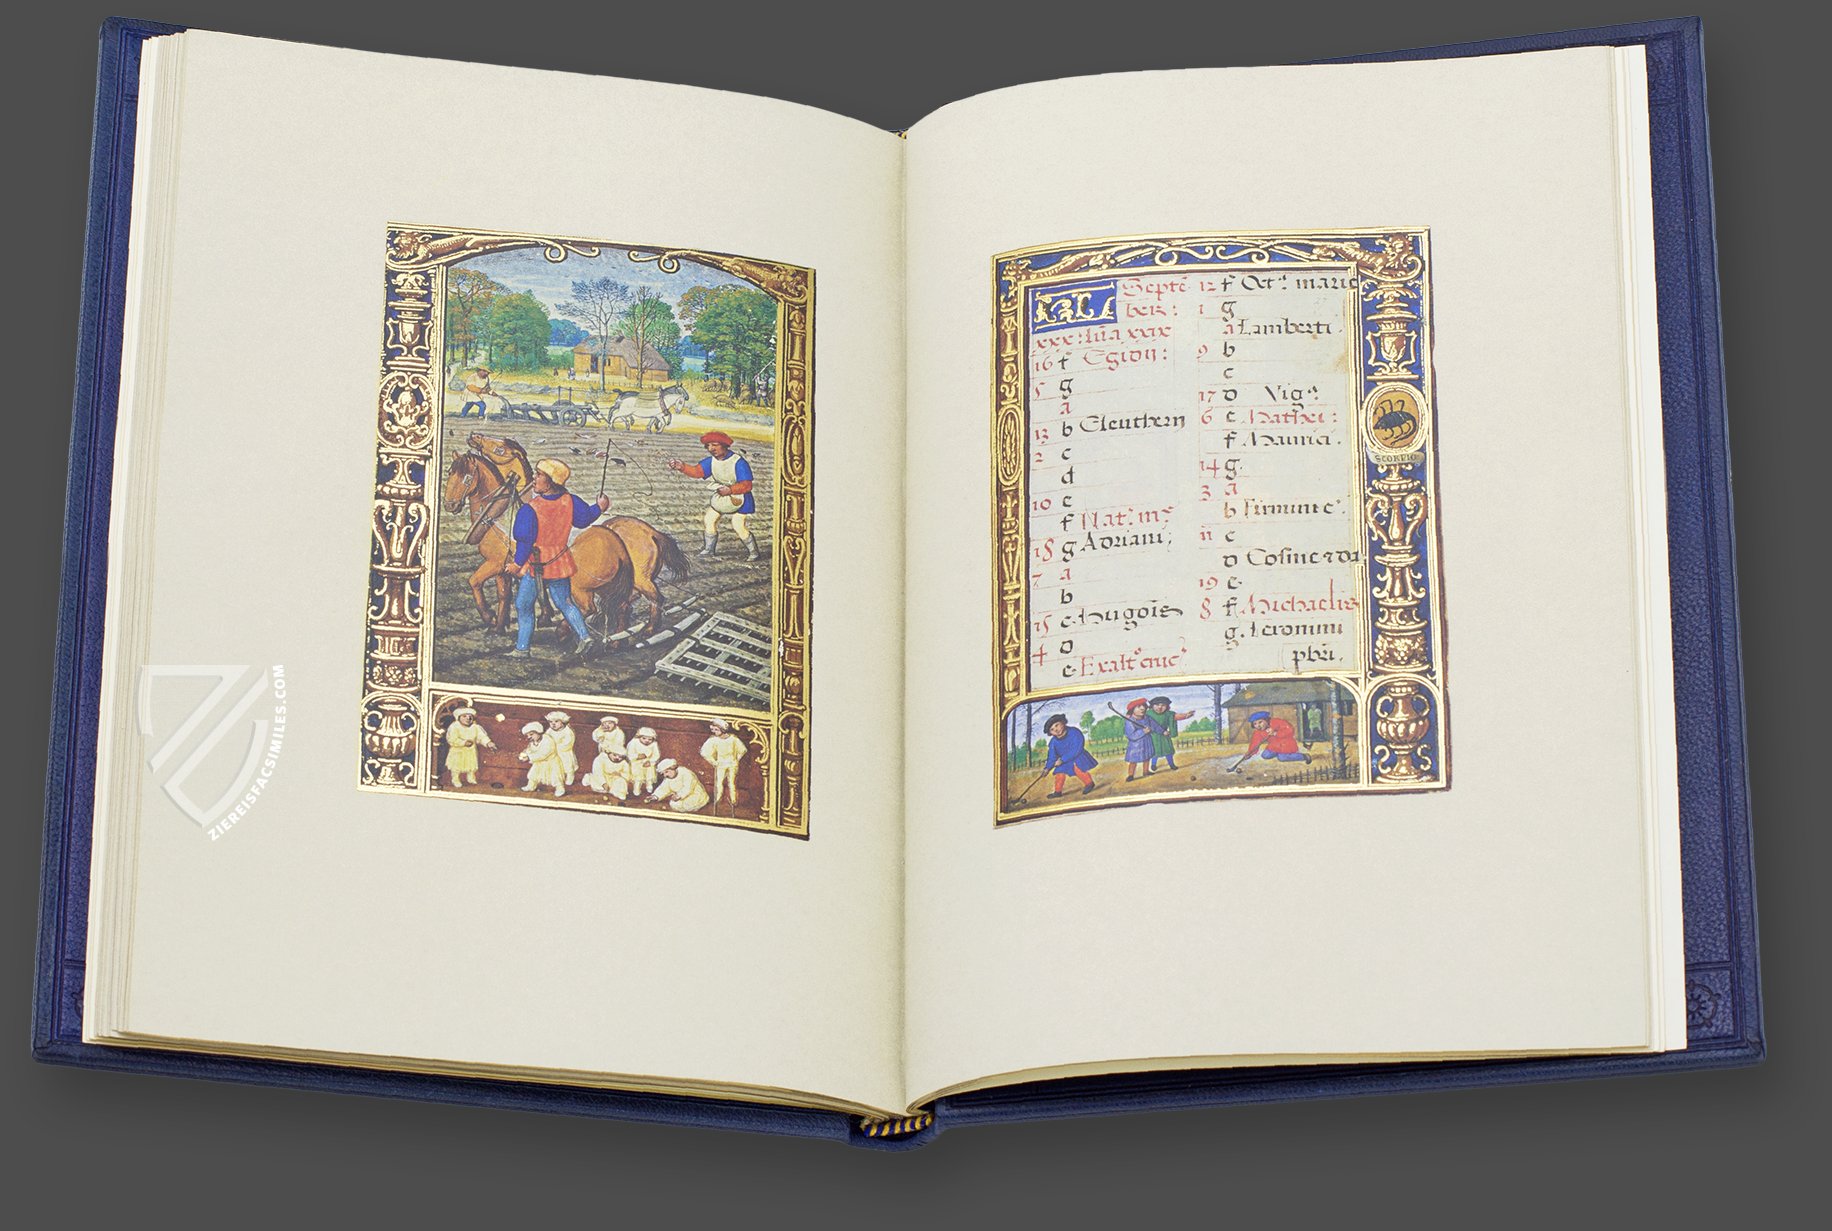 KL Septē
ber:
xxx: luā xxix
16 f Egidii:
5 g
a
13 b Eleutherii
2 c
d
10 e
f Nat.s mꝫ
18 g Adriani;
7 a
b
15 c Hugois
4 d
e Exalt.o cruc.s
12 f Oct.s marie
1 g
a Lamberti.
9 b
c
17 d Vig.a
6 e Mathei:
f Maurici.
14 g.
3 a
b Firmini e.
11 c
d Cosme ⁊ da
19 e.
8 f Michaelis
g. Ieronimi
pbri.
SCORPIO
ZIEREISFACSIMILES.COM